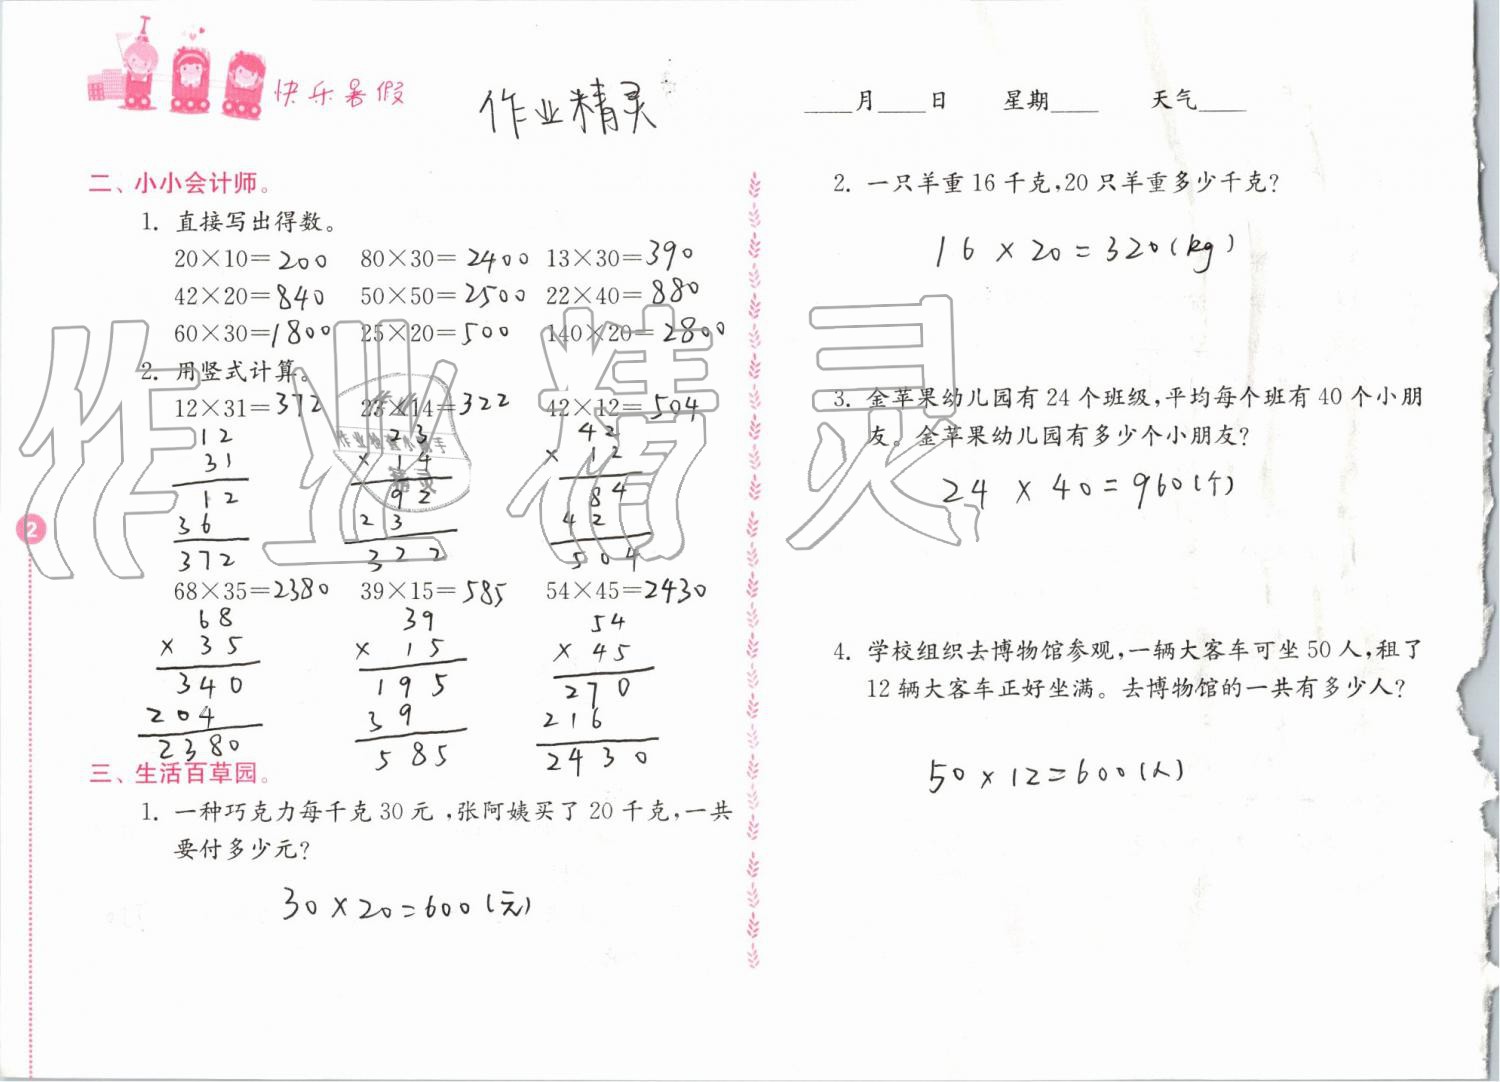 快乐暑假
作业精灵
____月____日 星期____ 天气____
二、小小会计师。
1. 直接写出得数。
20×10=200 80×30=2400 13×30=390
42×20=840 50×50=2500 22×40=880
60×30=1800 25×20=500 140×20=2800
2. 用竖式计算。
12×31=372 23×14=322 42×12=504
12 23 42
31 ×14 ×12
12 92 84
36 23 42
372 322 504
68×35=2380 39×15=585 54×45=2430
68 39 54
×35 ×15 ×45
340 195 270
204 39 216
2380 585 2430
三、生活百草园。
1. 一种巧克力每千克30元,张阿姨买了20千克,一共
要付多少元?
30×20=600(元)
2
2. 一只羊重16千克,20只羊重多少千克?
16×20=320(kg)
3. 金苹果幼儿园有24个班级,平均每个班有40个小朋
友。金苹果幼儿园有多少个小朋友?
24×40=960(个)
4. 学校组织去博物馆参观,一辆大客车可坐50人,租了
12辆大客车正好坐满。去博物馆的一共有多少人?
50×12=600(人)
作业精灵